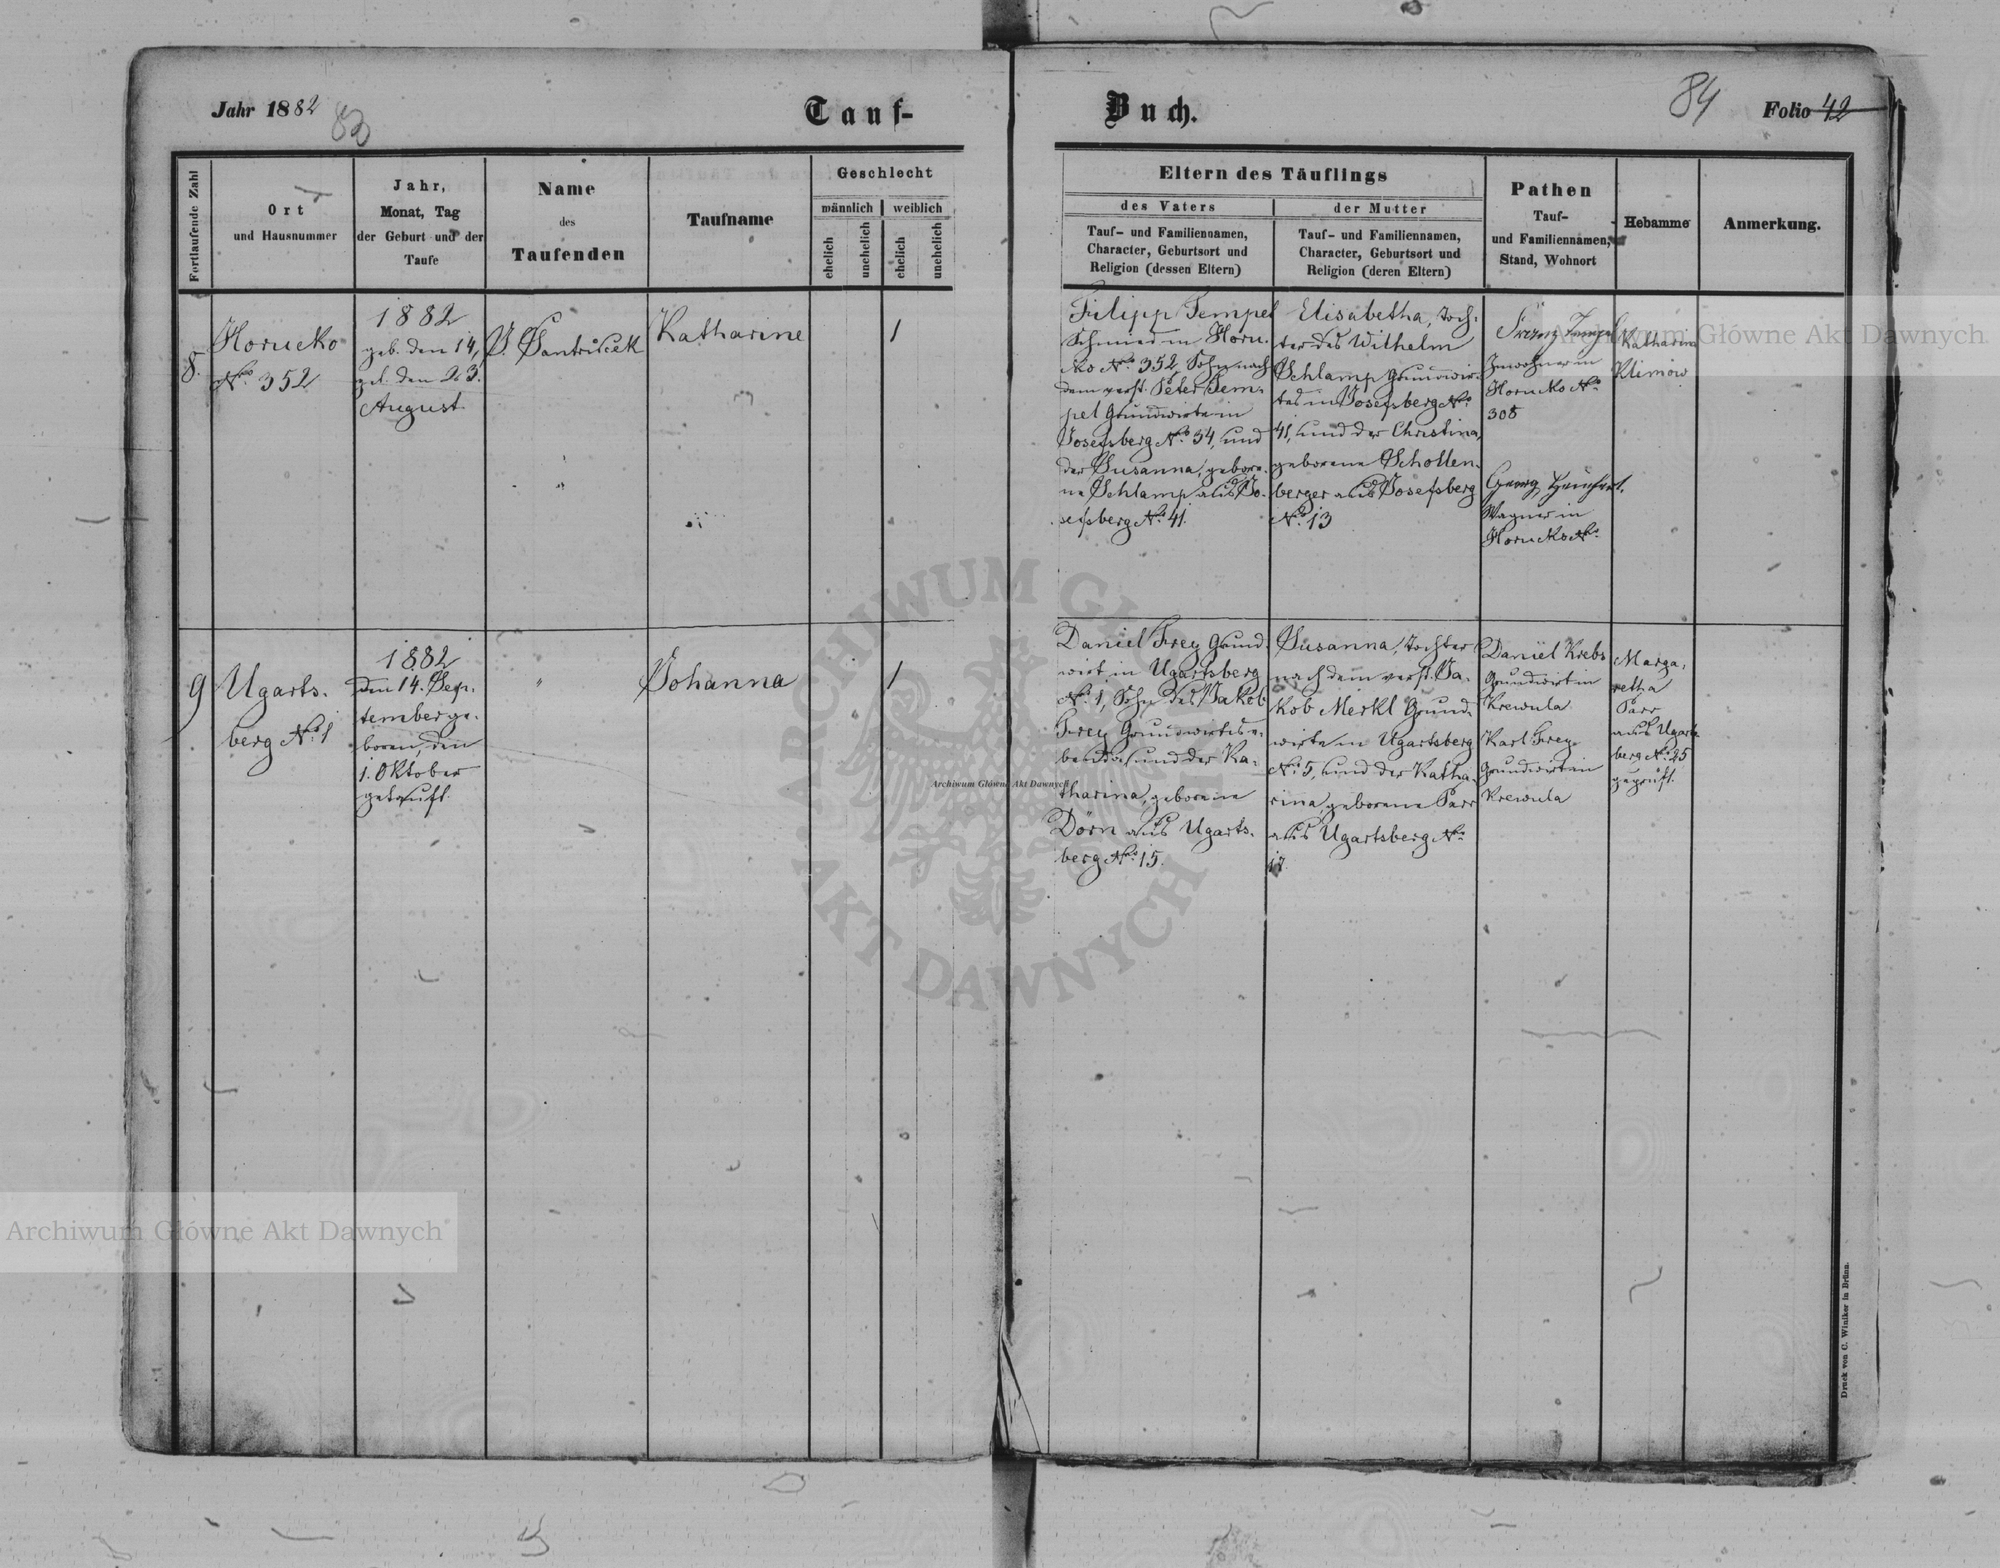 Jahr 1882
83
Tauf-
Buch.
84
Folio 42
Fortlaufende Zahl
Ort
und Hausnummer
Jahr,
Monat, Tag
der Geburt und der
Taufe
Name
des
Taufenden
Taufname
Geschlecht
männlich
weiblich
ehelich
unehelich
ehelich
unehelich
Eltern des Täuflings
des Vaters
Tauf- und Familiennamen,
Character, Geburtsort und
Religion (dessen Eltern)
der Mutter
Tauf- und Familiennamen,
Character, Geburtsort und
Religion (deren Eltern)
Pathen
Tauf-
und Familiennamen,
Stand, Wohnort
Hebamme
Anmerkung.
8.
Horucko
No. 352
1882
geb. den 14,
get. den 23.
August.
Katharine
1
Filipp Tempel
Schmied in Horu-
cko No. 352, Sohn nach
dem verst. Peter Tem-
pel Grundwirte in
Josefsberg No. 34, und
der Susanna, gebore-
ne Schlamp aus Jo-
sefsberg No. 41.
Elisabetha, Toch-
ter des Wilhelm
Schlamp Grundwir-
tes in Josefsberg No.
41, und der Christina,
geborene Schollen-
berger aus Josefsberg
No. 13
Franz Tempel
Inwohner in
Horucko No.
308
Georg
Wagner in
Horucko No.
Katharina
Klimow
9
Ugarts-
berg No. 1
1882
den 14. Sep-
tember ge-
boren, den
1. Oktober
getauft.
"
Johanna
1
Daniel Frey Grund-
wirt in Ugartsberg
No. 1, Sohn des Jakob
Frey Grundwirtes e-
benda, und der Ka-
tharina, geborene
Dörn aus Ugarts-
berg No. 15.
Susanna, Tochter
nach dem verst. Ja-
kob Merkl Grund-
wirte in Ugartsberg
No. 5, und der Katha-
rina, geborene Parr
aus Ugartsberg No.
17.
Daniel Krebs
Grundwirt in
Krewula
Karl Frey
Grundwirt in
Krewula
Marga-
retha
Parr
aus Ugarts
berg No. 25
geprüft.
Archiwum Główne Akt Dawnych
Archiwum Główne Akt Dawnych
Archiwum Główne Akt Dawnych
ARCHIWUM GŁÓWNE AKT DAWNYCH
Druck von C. Winiker in Brünn.